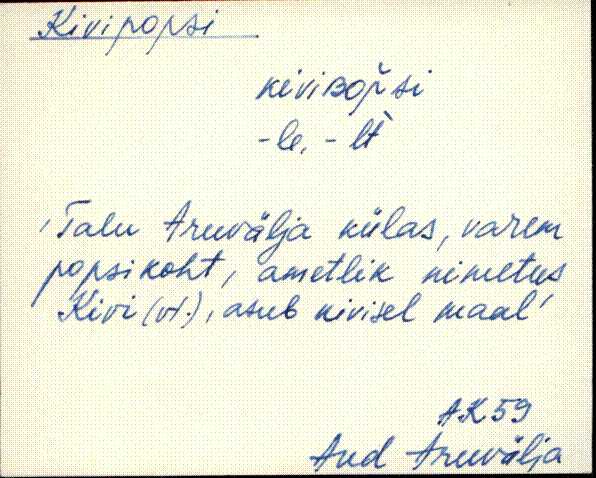 Kivipopsi
kiviʙop̆si
-le, -lt̀
'Talu Aruvälja külas, varem
popsikoht, ametlik nimetus
Kivi (vt.), asub kivisel maal'
AK 59
Aud Aruvälja